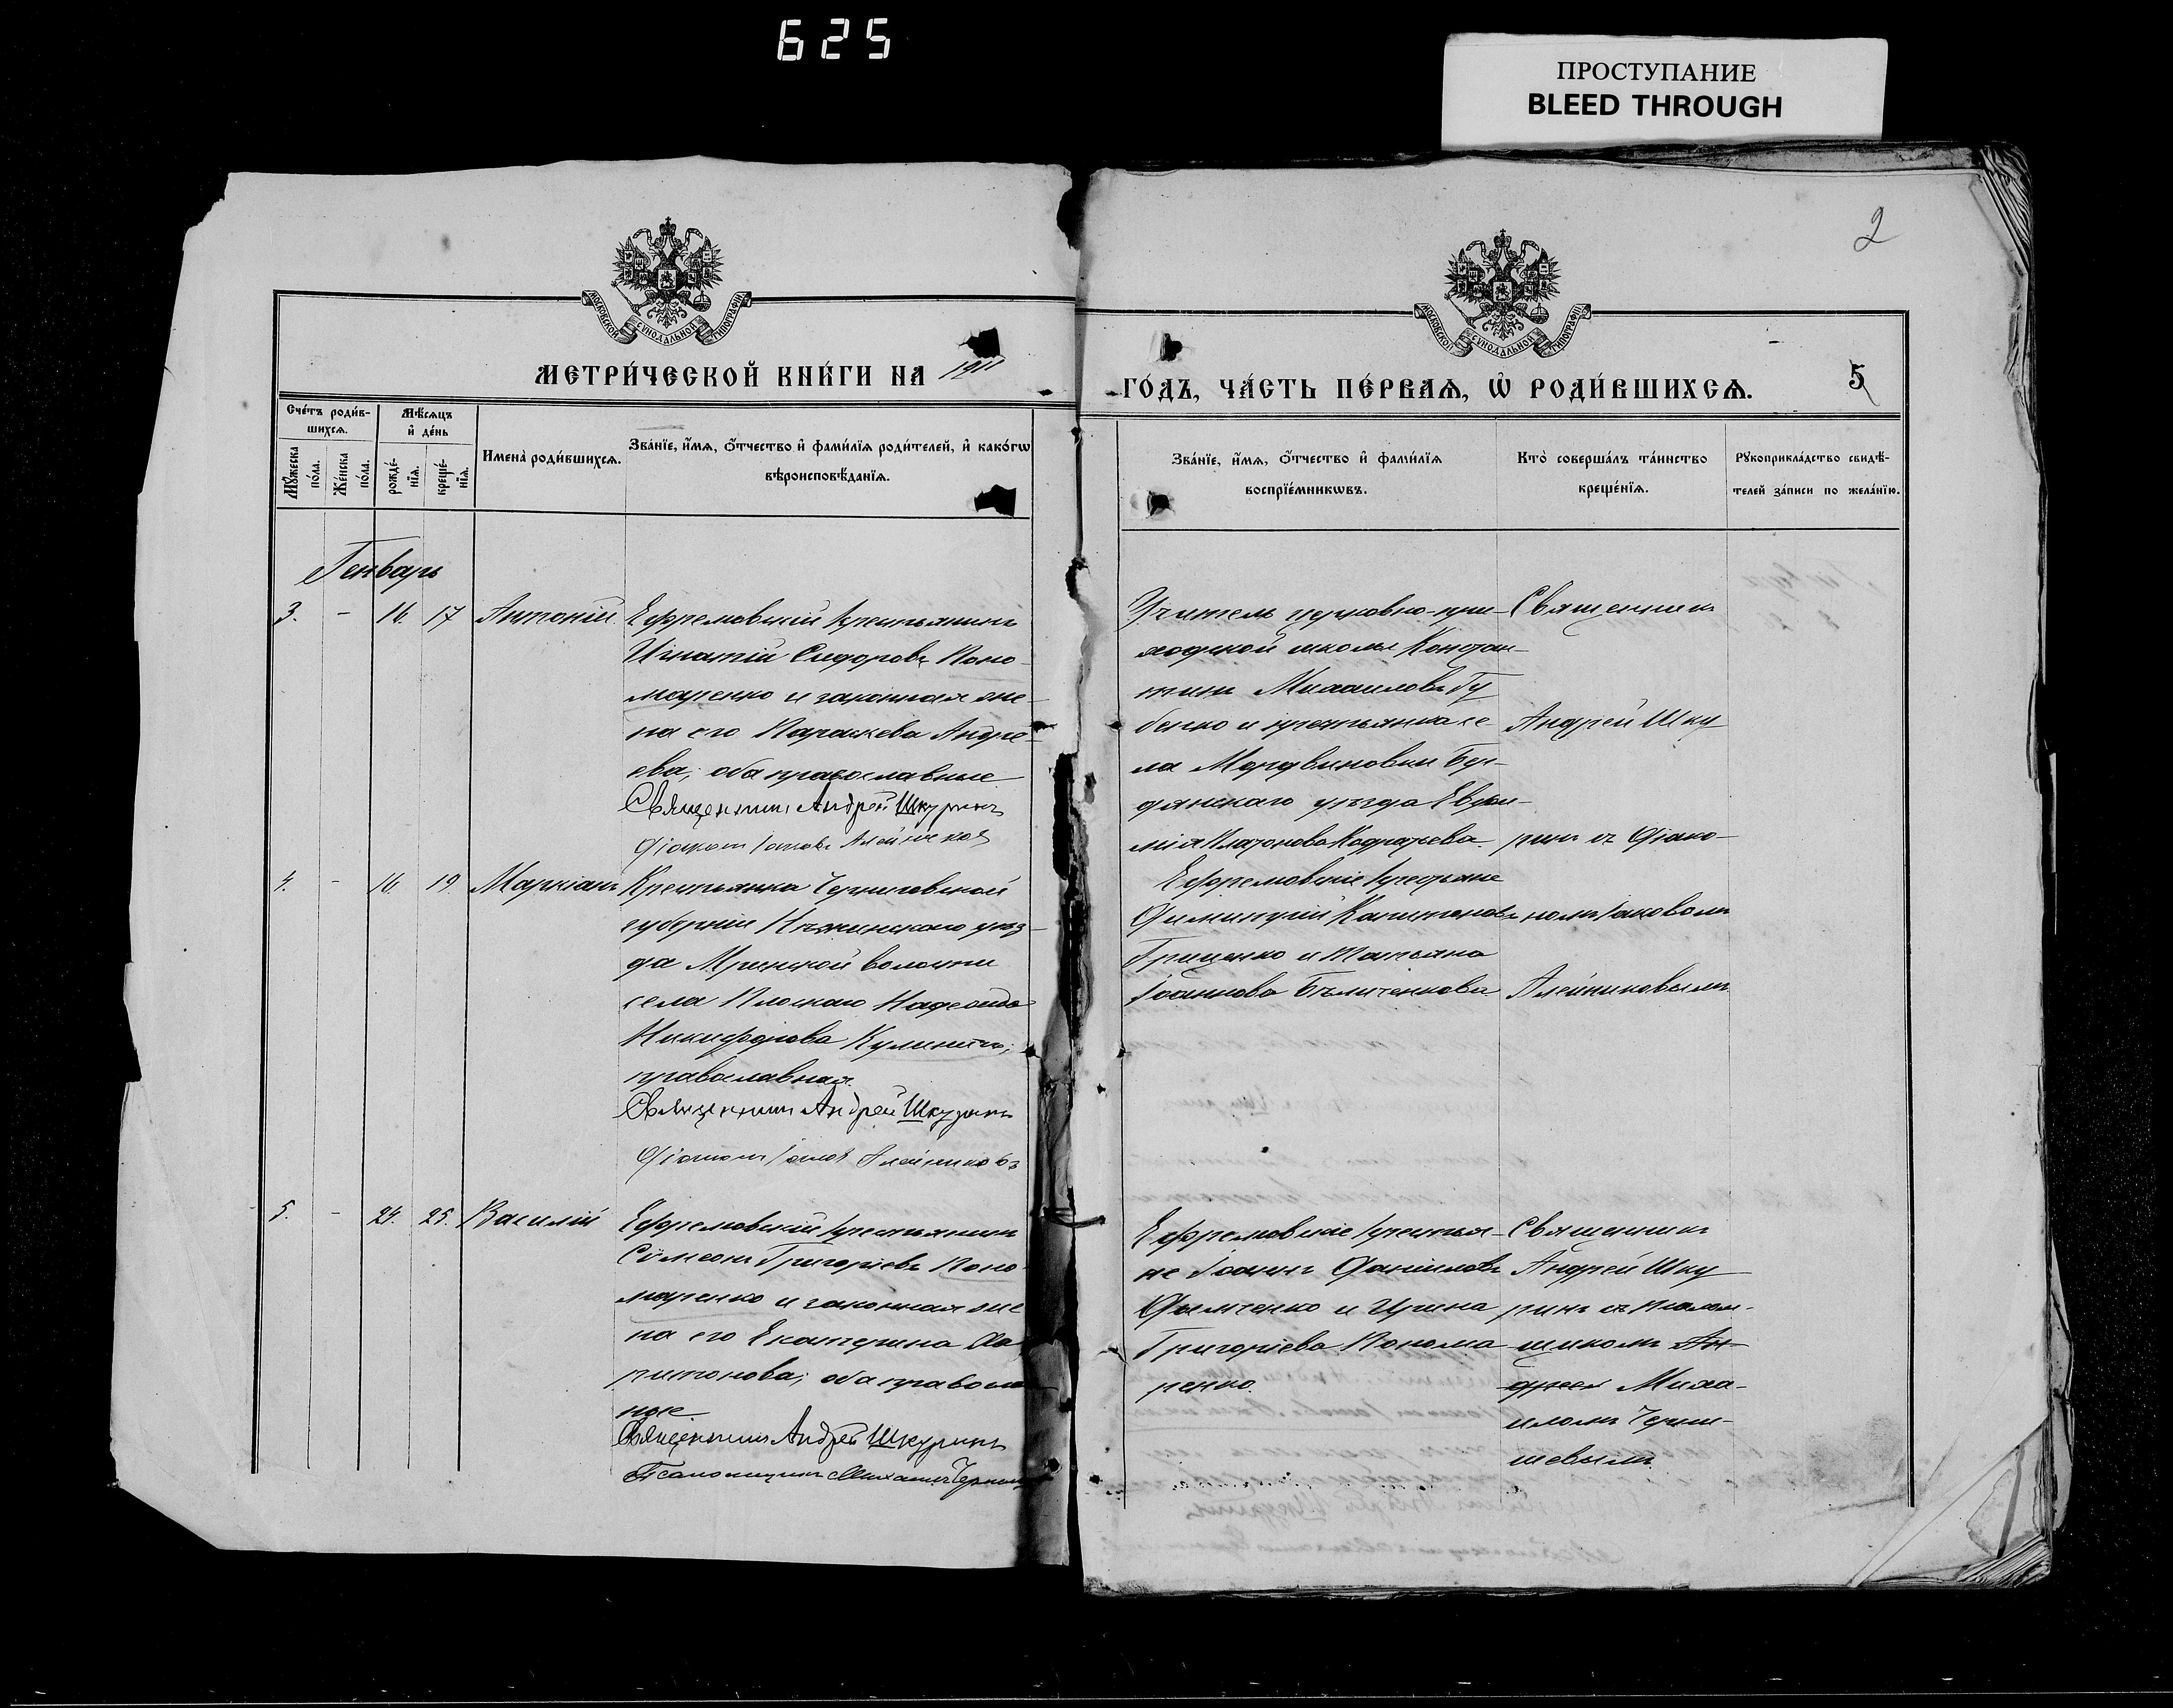 625
ПРОСТУПАНИЕ
BLEED THROUGH
2
МОСКОВСКОЙ СѴНОДАЛЬНОЙ ТИПОГРАФІИ
МОСКОВСКОЙ СѴНОДАЛЬНОЙ ТИПОГРАФІИ
МЕТРИ́ЧЕСКОЙ КНИ́ГИ НА 1911
ГО́ДЪ, ЧА́СТЬ ПЕ́РВАѦ, Ѡ҆ РОДИ́ВШИХСѦ.
5
Сче́тъ роди́в-
шихсѧ.
Мꙋ́жеска
по́ла.
Же́нска
по́ла.
Мѣ́сѧцъ
и҆ де́нь
рожде́-
нїѧ.
креще́-
нїѧ.
Имена̀ роди́вшихсѧ.
Зва́нїе, и҆́мѧ, ѻ҆́тчество и҆ фами́лїѧ роди́телей, и҆ како́гѡ
вѣроисповѣ́данїѧ.
Зва́нїе, и҆́мѧ, ѻ҆́тчество и҆ фами́лїѧ
воспрїе́мникѡвъ.
Кто̀ соверша́лъ та́инство
креще́нїѧ.
Рꙋкоприкла́дство свидѣ́-
телей за́писи по жела́нїю.
Генварь
3. - 16. 17 Антоній
Ефремовскій крестьянинъ
Игнатій Сидоровъ Поно-
маренко и законная же-
на его Параскева Андре-
ева; оба православные
Священникъ Андрей Шкуринъ
Діаконъ Іаковъ Алейников
Учитель церковно-при-
ходской школы Констан-
тинъ Михаиловъ Гу
бенко и крестьянка се-
ла Мордвиновки Бер-
дянскаго уѣзда Евфи-
мія Платонова Кодратьева.
Священникъ
Андрей Шку
ринъ съ Діако-
4. - 16. 19. Маркіанъ
Крестьянка Черниговской
губерніи Нѣжинскаго уѣз-
да Мринской волости
села Плоскаго Надежда
Никифорова
православная.
Священникъ Андрей Шкуринъ
Діаконъ Іаковъ Алейниковъ
Ефремовскіе крестьяне
Димитрій Капитоновъ
Гриценко и Татьяна
Іоаннова Бѣличенкова
номъ Іаковомъ
Алейниковымъ
5. - 24. 25. Василій
Ефремовскій крестьянинъ
Сѵмеонъ Григоріевъ Поно-
маренко и законная же
на его Екатерина Ха
ритонова; оба правосла
ные
Священникъ Андрей Шкуринъ
Псаломщикъ Михаилъ Черныш
Ефремовскіе крестья-
не Іоаннъ Даніиловъ
Дымченко и Ирина
Григоріева Понома
ренко.
Священникъ
Андрей Шку
ринъ съ псалом-
щикомъ Ан-
дреем Миха-
иломъ Черны-
шевымъ